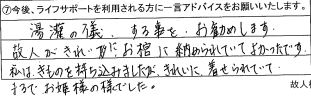 ⑦今後、ライフサポートを利用される方に一言アドバイスをお願いいたします。
湯灌の儀、する事を、お勧めします。
故人がきれいにお棺に納められていてよかったです。
私は、きものを持ち込みましたが、きれいに着せられていて
まるでお姫様の様でした。
故人